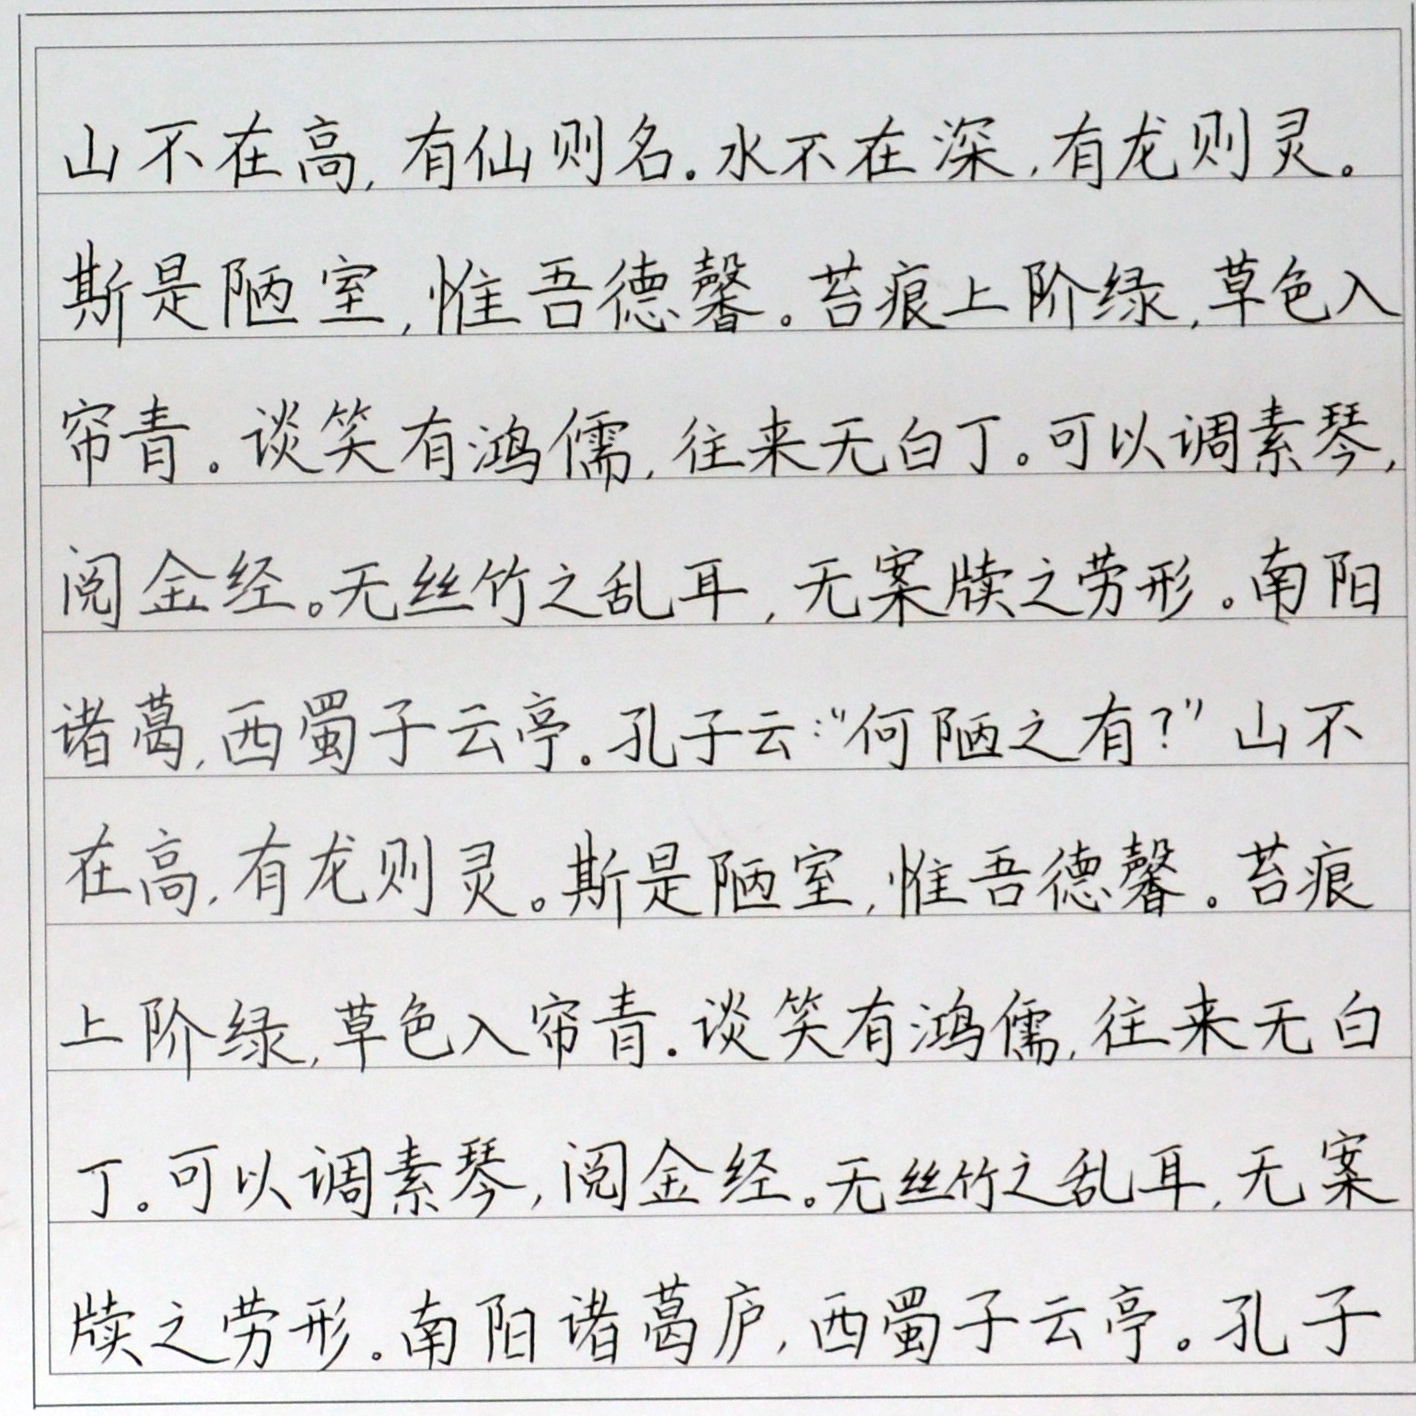 山不在高,有仙则名.水不在深,有龙则灵。
斯是陋室,惟吾德馨。苔痕上阶绿,草色入
帘青。谈笑有鸿儒,往来无白丁。可以调素琴,
阅金经。无丝竹之乱耳,无案牍之劳形。南阳
诸葛,西蜀子云亭.孔子云:“何陋之有?”山不
在高,有龙则灵。斯是陋室,惟吾德馨。苔痕
上阶绿,草色入帘青.谈笑有鸿儒,往来无白
丁。可以调素琴,阅金经。无丝竹之乱耳,无案
牍之劳形.南阳诸葛庐,西蜀子云亭。孔子